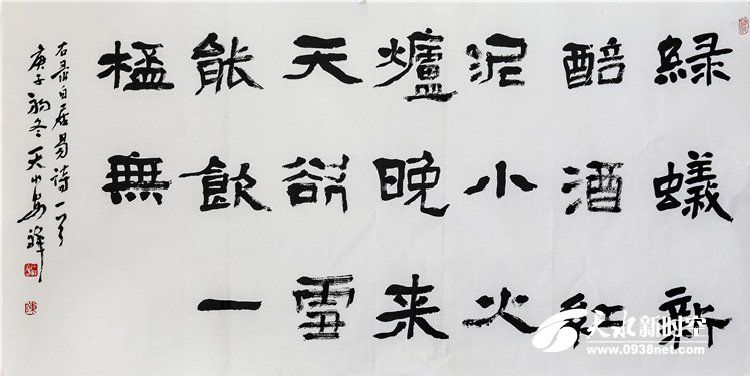 綠蟻新
醅酒紅
泥小火
爐晚来
天欲雪
能飲一
杯無
右录白居易詩一首
庚子初冬天水
天水新时空
www.0938net.com